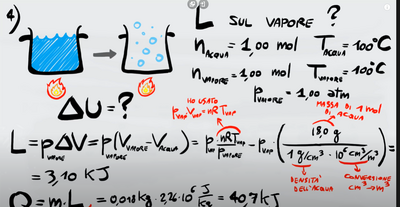 4)
L SUL VAPORE ?
n ACQUA = 1,00 mol T ACQUA = 100°C
n VAPORE = 1,00 mol T VAPORE = 100°C
p VAPORE = 1,00 atm
ΔU = ?
HO USATO
p VAP V VAP = nRT VAP
MASSA DI 1 mol
DI ACQUA
L = p VAPORE ΔV = p VAPORE (V VAPORE - V ACQUA) = p VAP · nRT VAP / p VAPORE - p VAP · ( 18,0 g / 1 g/cm³ · 10⁶ cm³/m³ ) =
= 3,10 KJ
DENSITÀ
DELL'ACQUA
CONVERSIONE
cm³→m³
Q = m · L = 0,018 kg · 2,26·10⁶ J/kg = 40,7 KJ